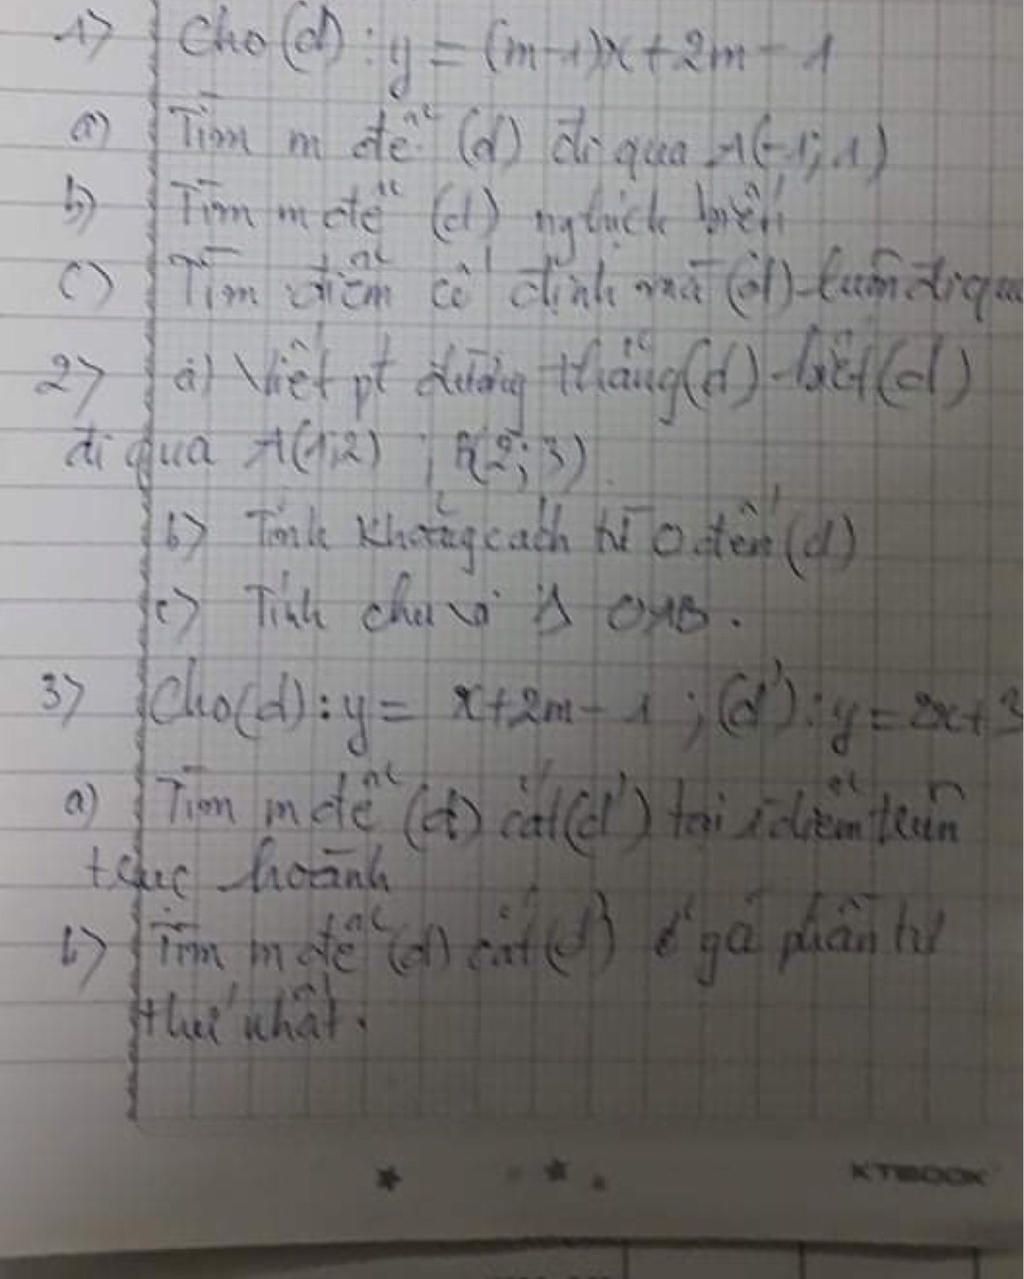 1) Cho (d): y = (m-1)x + 2m - 1
a) Tìm m để (d) đi qua A(-1; 1)
b) Tìm m để (d) nghịch biến
c) Tìm điểm cố định mà (d) luôn đi qua
2) a) Viết pt đường thẳng (d) biết (d)
đi qua A(1;2) ; B(2; 3)
b) Tính khoảng cách từ O đến (d)
c) Tính chu vi Δ OAB.
3) Cho (d): y = x + 2m - 1 ; (d'): y = 2x + 3
a) Tìm m để (d) cắt (d') tại 1 điểm trên
trục hoành
b) Tìm m để (d) cắt (d') ở góc phần tư
thứ nhất.
KTBOOK